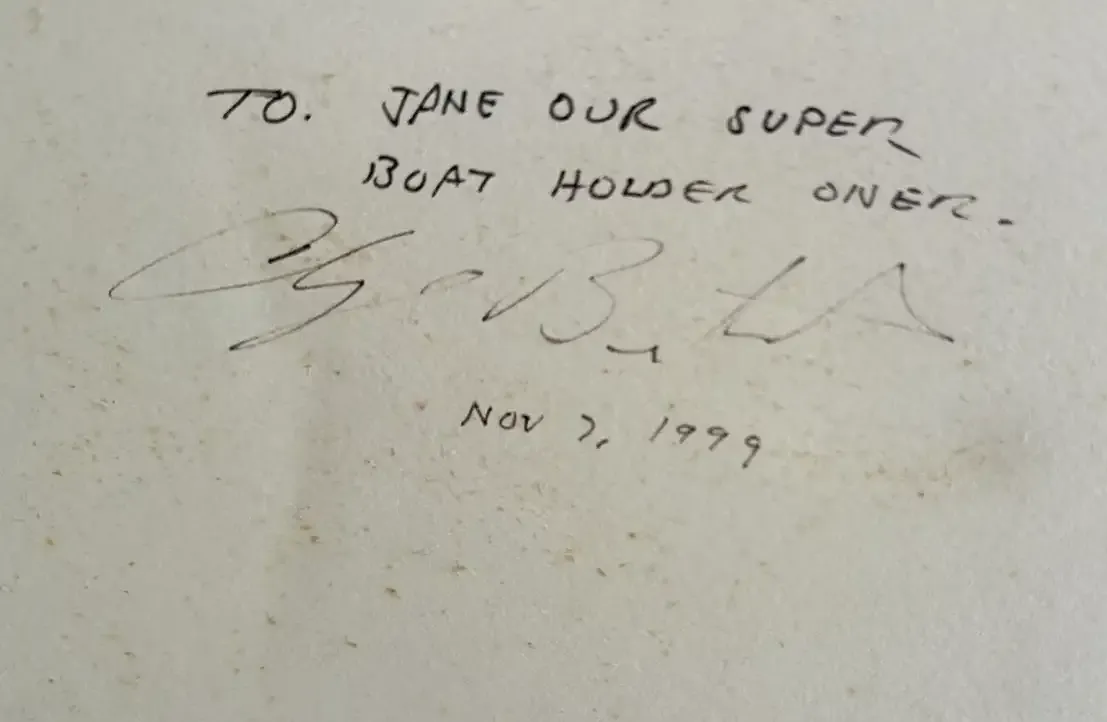 TO. JANE OUR SUPER
BOAT HOLDER ONER.
Nov 7, 1999